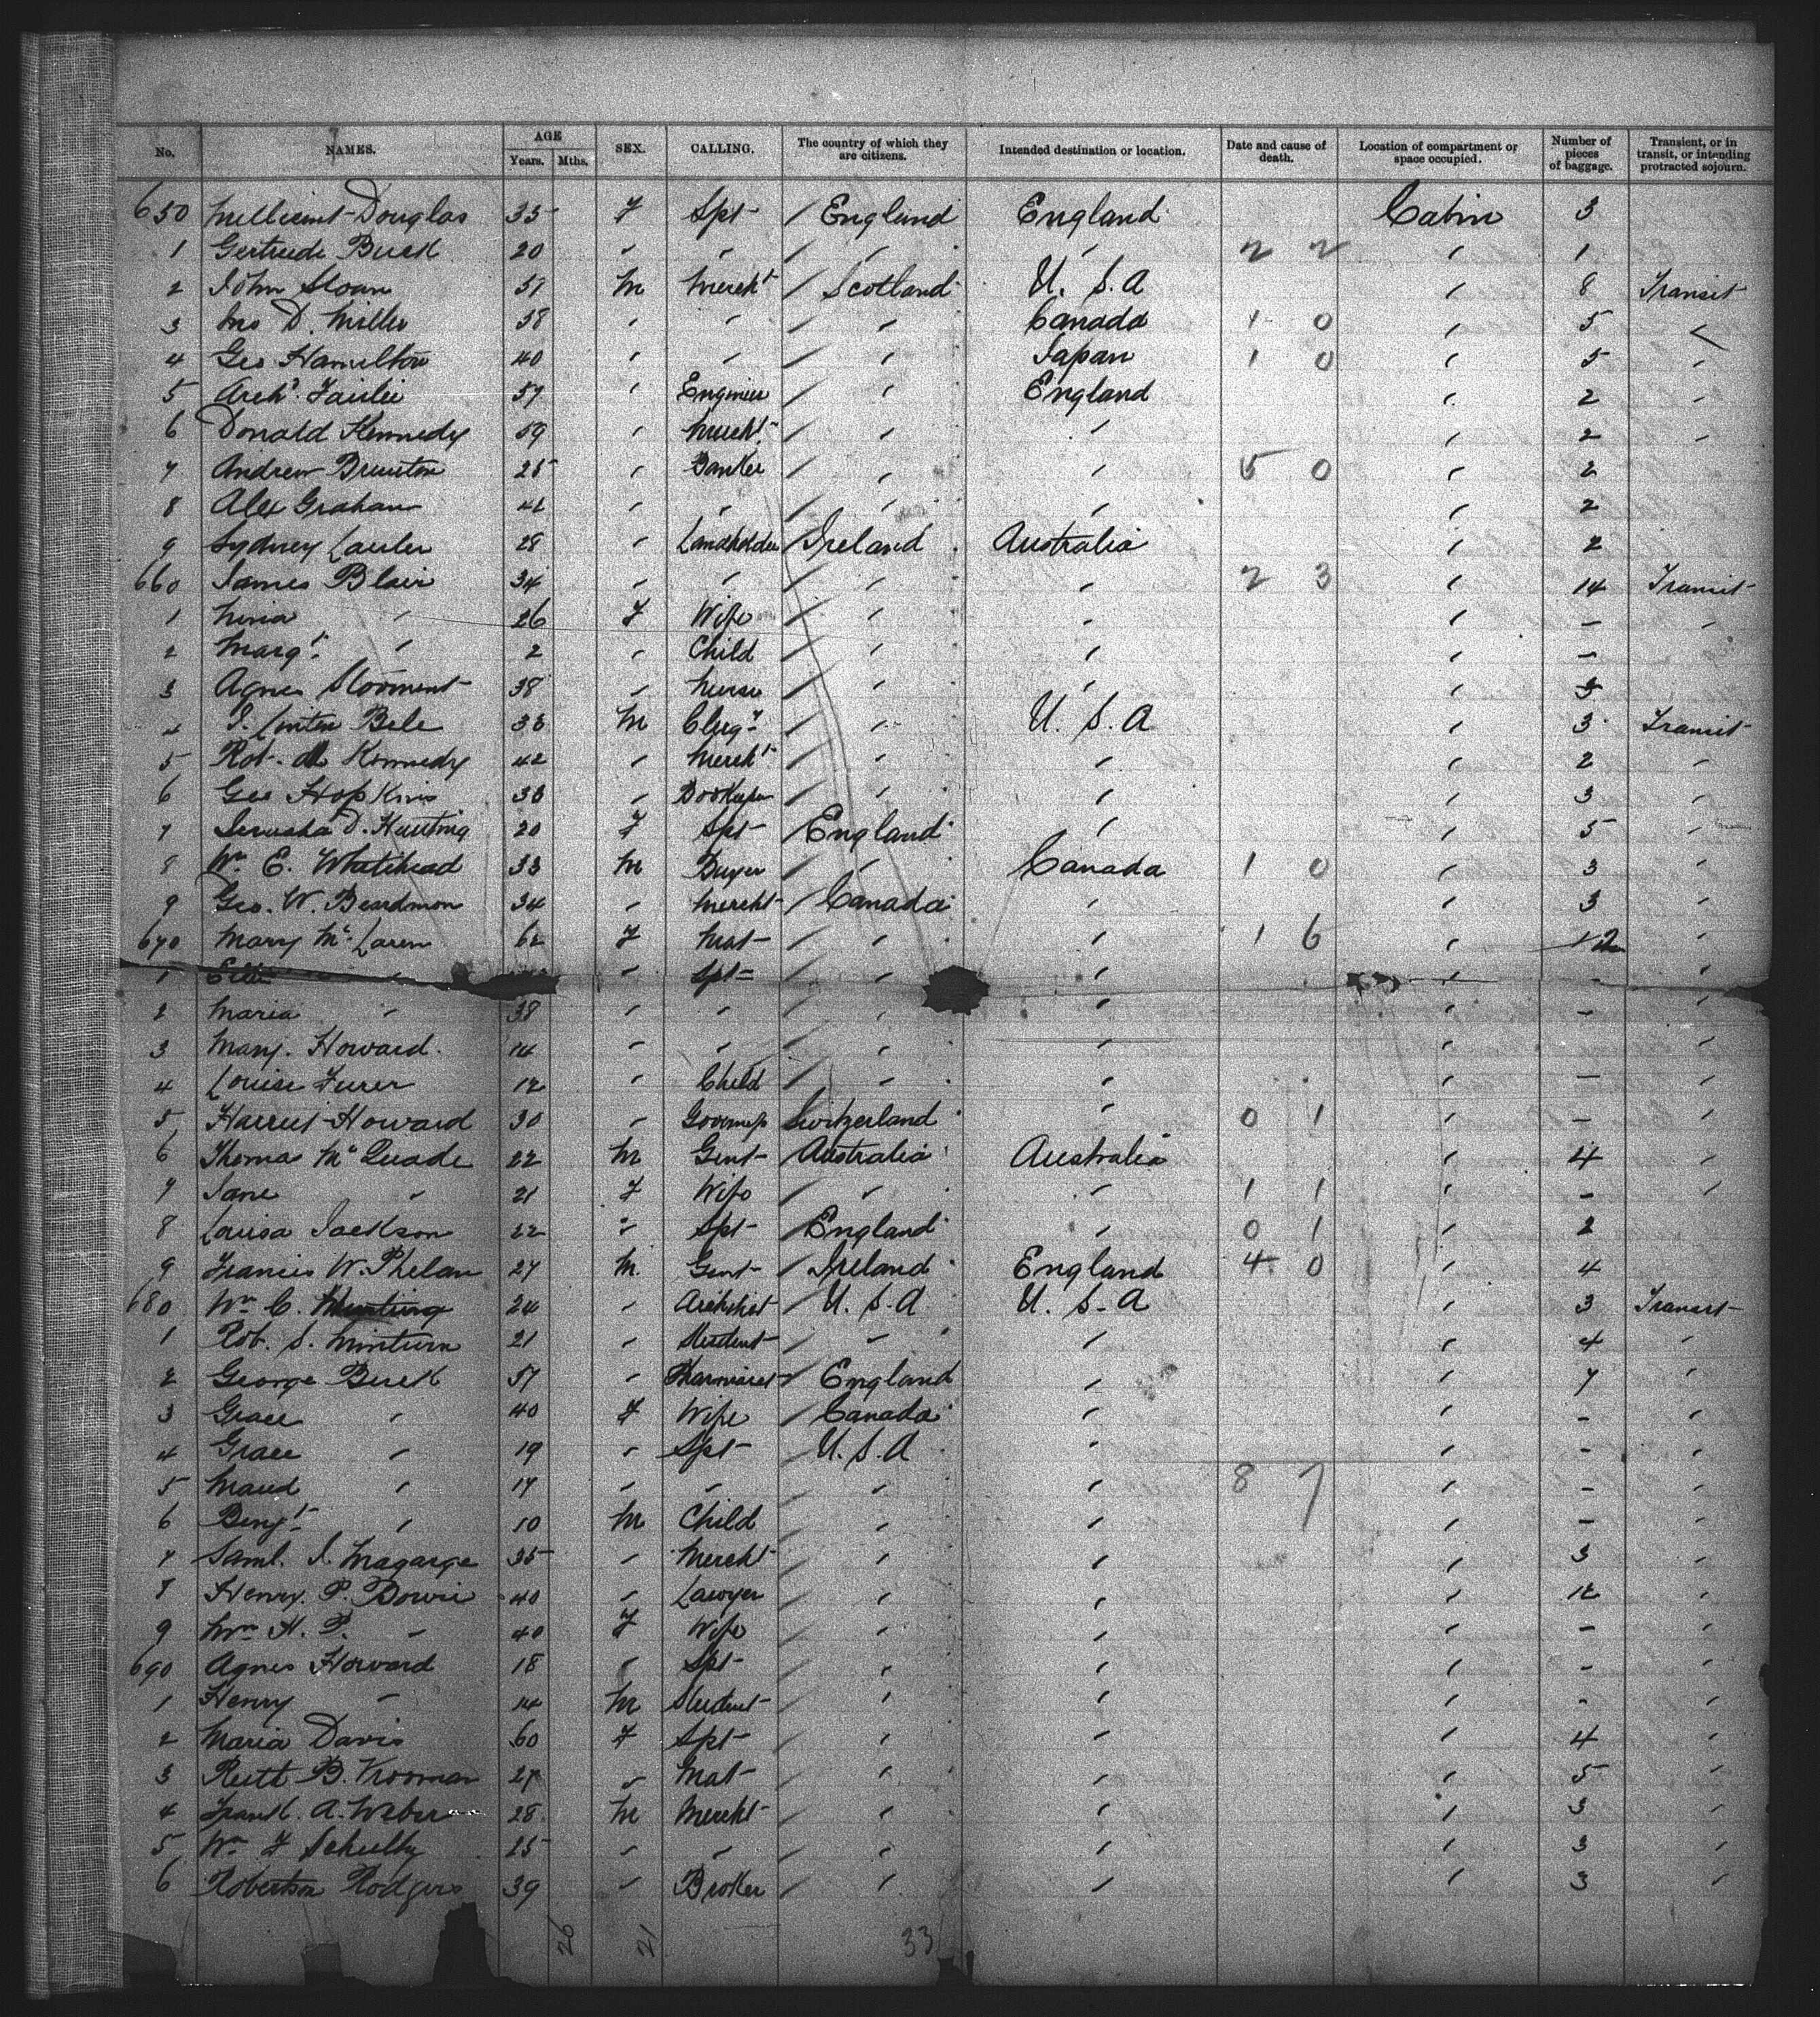 No. NAMES. AGE Years. Mths. SEX. CALLING. The country of which they are citizens. Intended destination or location. Date and cause of death. Location of compartment or space occupied. Number of pieces of baggage. Transient, or in transit, or intending protracted sojourn.
650 Millicent Douglas 35 F Spt / England England Cabin 3
1 Gertrude Buck 20 " " / " " 2 2 " 1
2 John Sloan M Mercht / Scotland U. S. A " 8 Transit
3 Jno D. Miller 38 " " / " Canada 1 0 " 5 "
4 Geo Hamilton 40 " " / " Japan 1 0 " 5 "
5 Archd. Fairlie 57 " Engineer / " England " 2 "
6 Donald Kennedy 59 " Mercht / " " " 2 "
7 Andrew Brunton 25 " Banker / " " 5 0 " 2
8 Alex Graham " " / " " " 2
9 Sydney 28 " Landholder / Ireland Australia " 2
660 James Blair 34 " " / " " 2 3 " 14 Transit
1 Nina " 26 F Wife / " " " - "
2 Margt. " 2 " Child / " " " -
3 Agnes 38 " Nurse / " " " 3
4 33 M Clergy / " U. S. A " 3 Transit
5 Robt. Kennedy 42 " Mercht / " " " 2 "
6 Geo Hopkins 33 " Bookeeper / " " " 3 "
7 Jerusha D. Hunting 20 F Spt / England " " 5 "
8 Wm E. Whitehead 33 M Buyer / " Canada 1 0 " 3 "
9 Geo. W. Beardmon 34 " Mercht / Canada " " 3 "
670 Mary McLaren 62 F Mat / " " 1 6 " 12 "
1 " " Spt / " " " - "
2 Maria " 38 " " / " " " - "
3 Mary. Howard 14 " " / " " " "
4 Louise Furer 12 " Child / " " " - "
5 Harriet Howard 30 " Governess Switzerland " 0 1 " - "
6 Thomas McQuade 22 M Gent Australia Australia " 4 "
7 Jane " 21 F Wife / " " 1 1 " - "
8 Louisa Jackson 22 " Spt / England " 0 1 " 2
9 Francis W. Phelan 27 M. Gent / Ireland England 4 0 " 4
680 Wm C. Hunting 24 " Architect / U. S. A U. S. A " 3 Transit
1 Rob. S. Minturn 21 " Student / " " " 4 "
2 George Buck 57 " Pharmacist / England " " 7 "
3 Grace " 40 F Wife / Canada " " - "
4 Grace " 19 " Spt / U. S. A " " - "
5 Maud " 17 " " / " " 8 7 " - "
6 Benjt. " 10 M Child / " " " - "
7 Saml. J. Magarge 35 " Mercht / " " " 3 "
8 Henry. P. Dowie 40 " Lawyer / " " " 12 "
9 Mrs H. P. " 40 F Wife / " " " - "
690 Agnes Howard 18 " Spt / " " " - "
1 Henry " 14 M Student / " " " - "
2 Maria Davis 60 F Spt / " " " 4 "
3 Ruth B. Vrooman 27 " Mat / " " " 5 "
4 Frank. A. Weber 28 M Mercht / " " " 3 "
5 Wm F Schultz 25 " " / " " " 3 "
6 Robertson Rodgers 39 " Broker / " " " 3 "
26 21 33